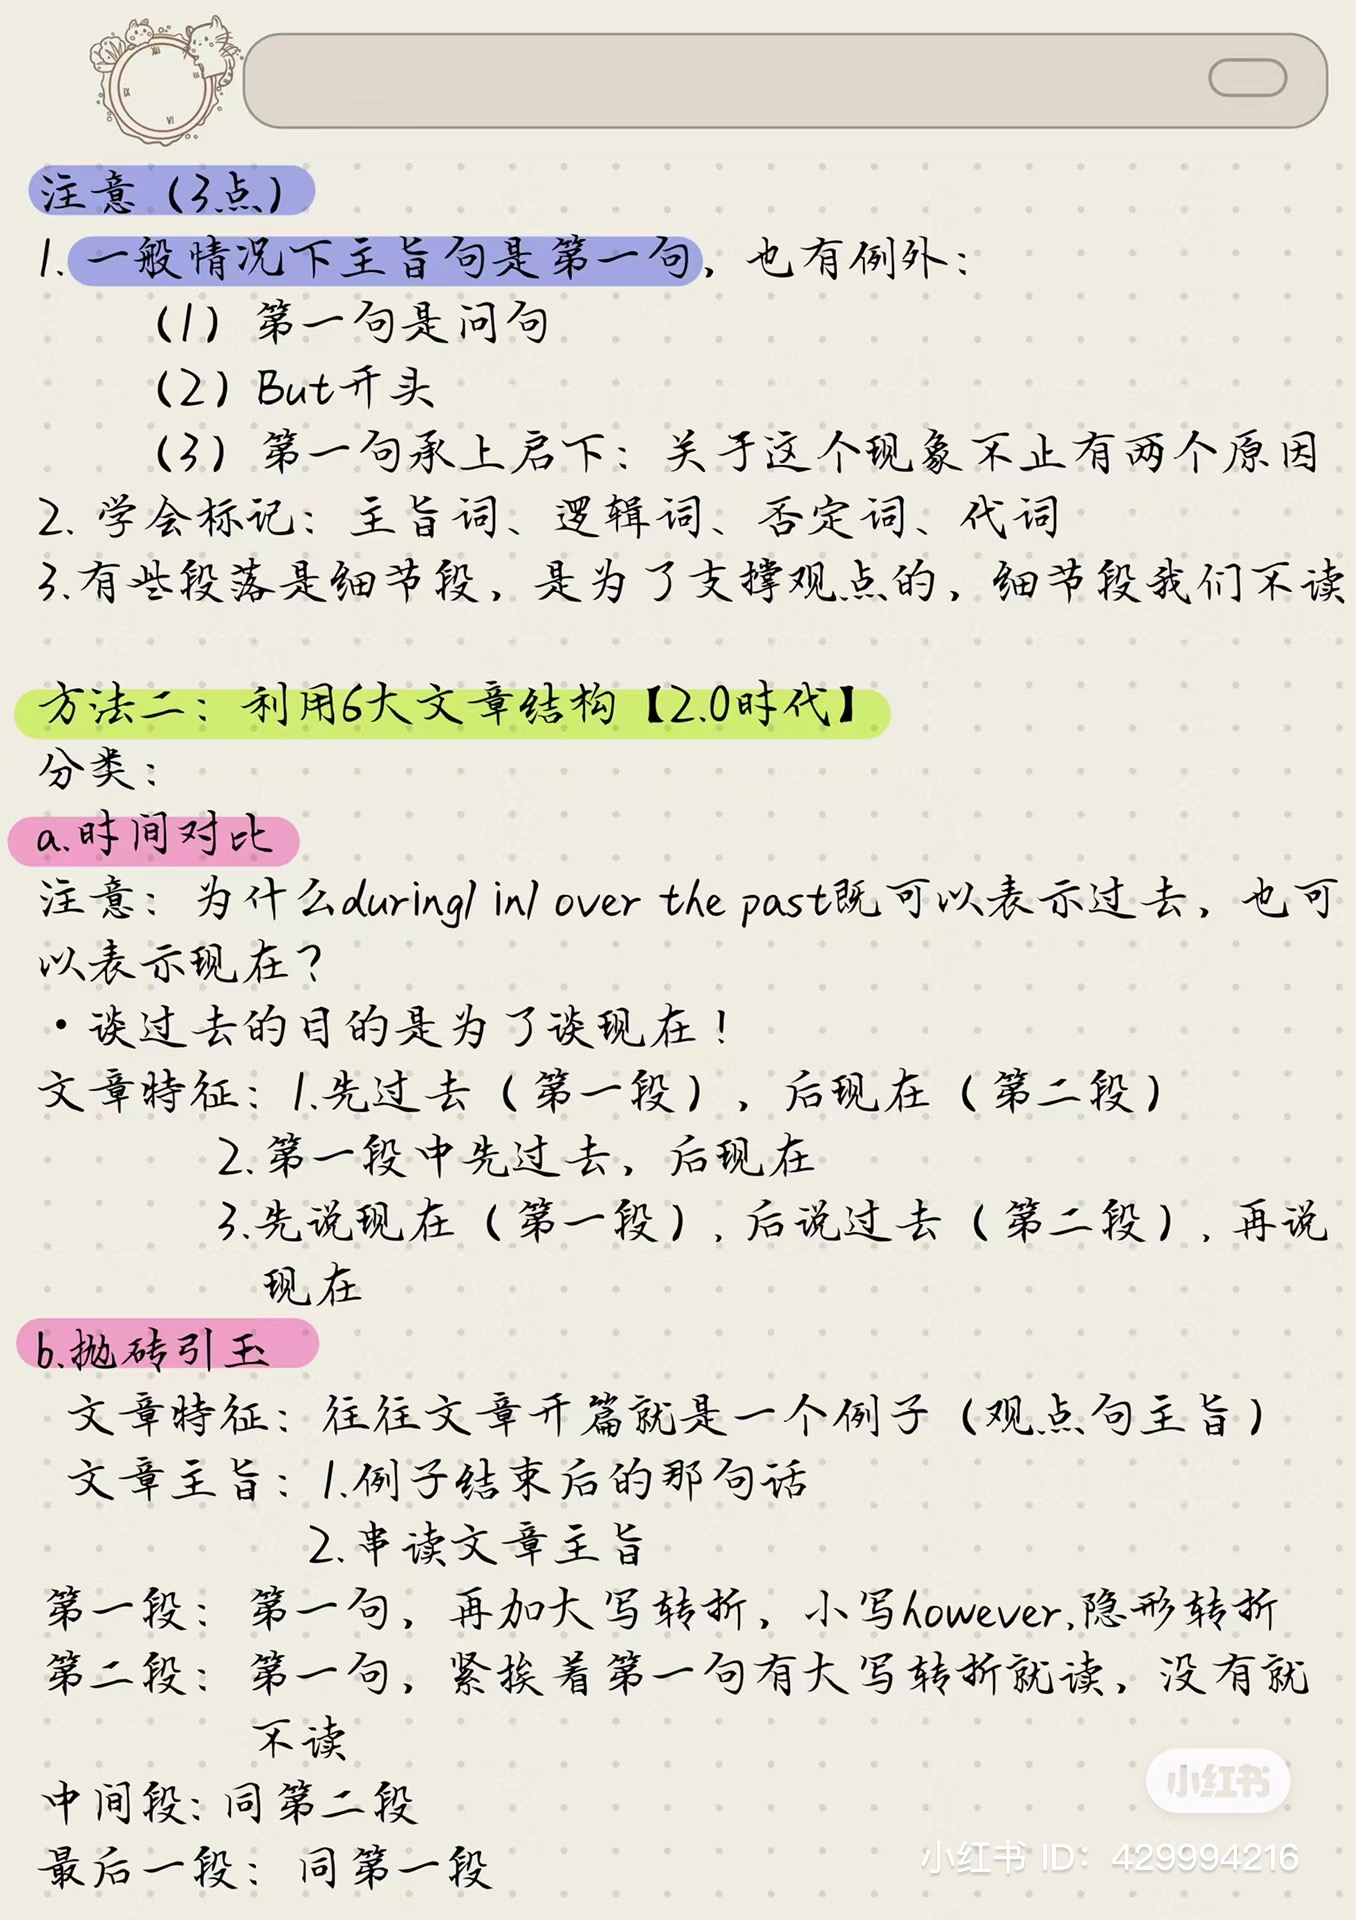 注意（3点）
1.一般情况下主旨句是第一句，也有例外：
（1）第一句是问句
（2）But开头
（3）第一句承上启下：关于这个现象不止有两个原因
2.学会标记：主旨词、逻辑词、否定词、代词
3.有些段落是细节段，是为了支撑观点的，细节段我们不读
方法二：利用6大文章结构【2.0时代】
分类：
a.时间对比
注意：为什么during/ in/ over the past既可以表示过去，也可
以表示现在？
·谈过去的目的是为了谈现在！
文章特征：1.先过去（第一段），后现在（第二段）
2.第一段中先过去，后现在
3.先说现在（第一段），后说过去（第二段），再说
现在
b.抛砖引玉
文章特征：往往文章开篇就是一个例子（观点句主旨）
文章主旨：1.例子结束后的那句话
2.串读文章主旨
第一段：第一句，再加大写转折，小写however,隐形转折
第二段：第一句，紧挨着第一句有大写转折就读，没有就
不读
中间段：同第二段
最后一段：同第一段
小红书
小红书 ID：429994216